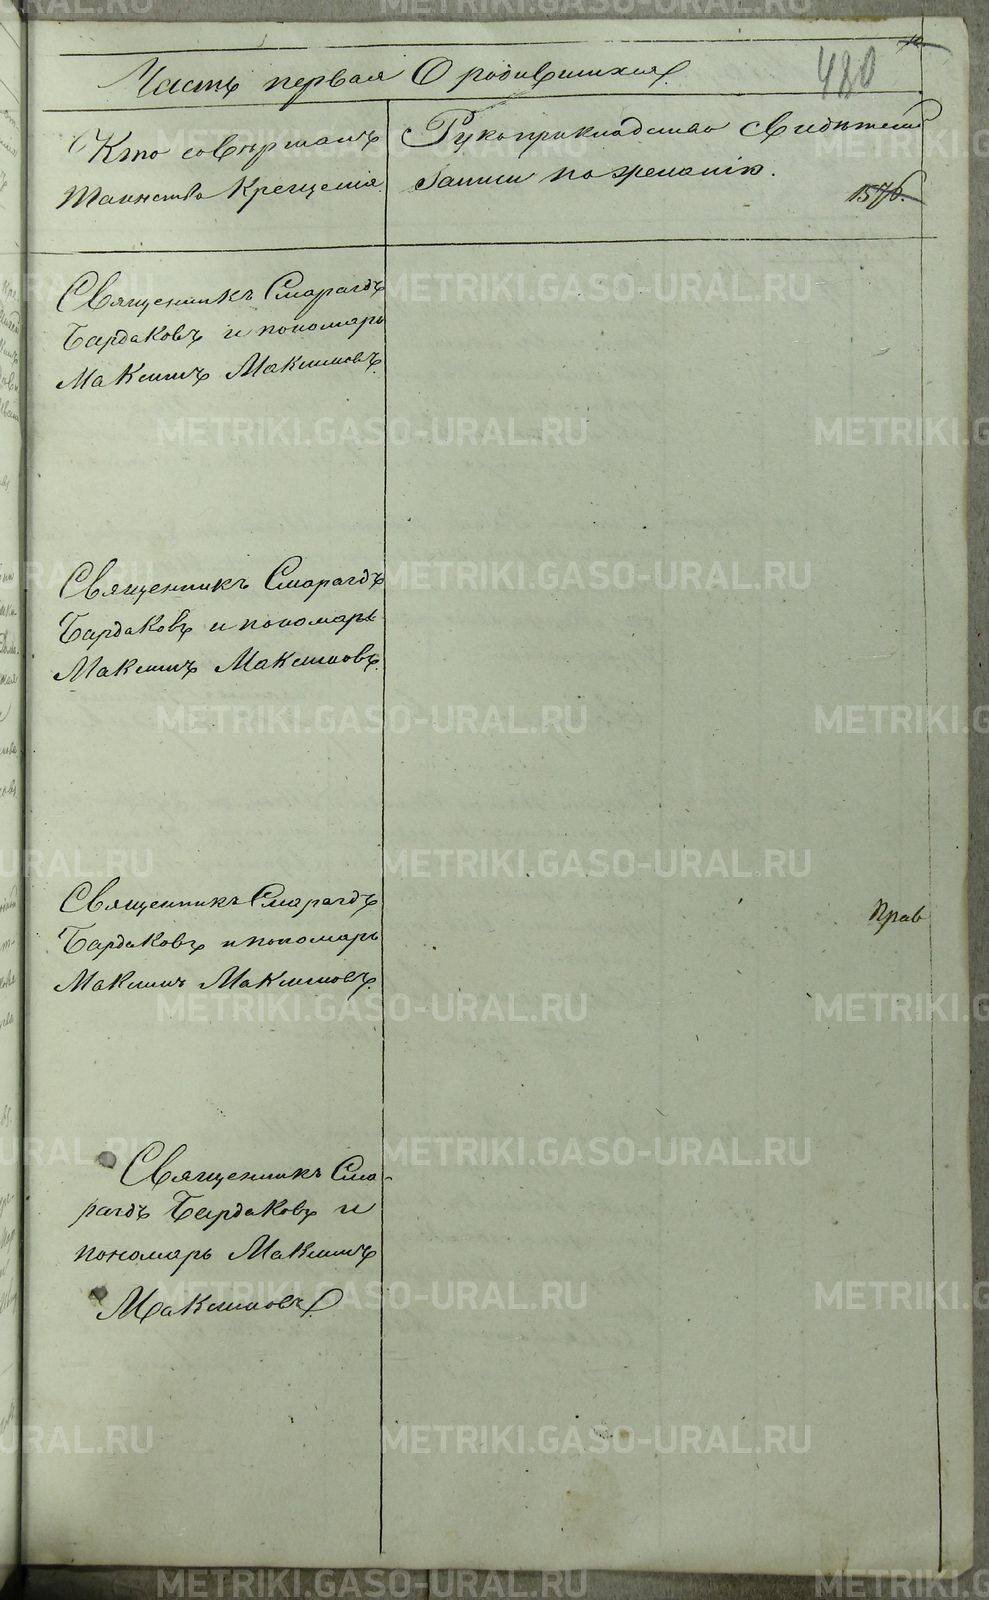 480
Часть первая О родившихся.
Кто совершалъ
таинство Крещенія.
Рукоприкладство свидѣтелей
записи по желанію.
1576.
Священникъ Смарагдъ
Бардаковъ и пономарь
Максимъ Максимовъ.
Священникъ Смарагдъ
Бардаковъ и пономарь
Максимъ Максимовъ.
Священникъ Смарагдъ
Бардаковъ и пономарь
Максимъ Максимовъ.
Прав
Священникъ Сма-
рагдъ Бардаковъ и
пономарь Максимъ
Максимовъ.
METRIKI.GASO-URAL.RU